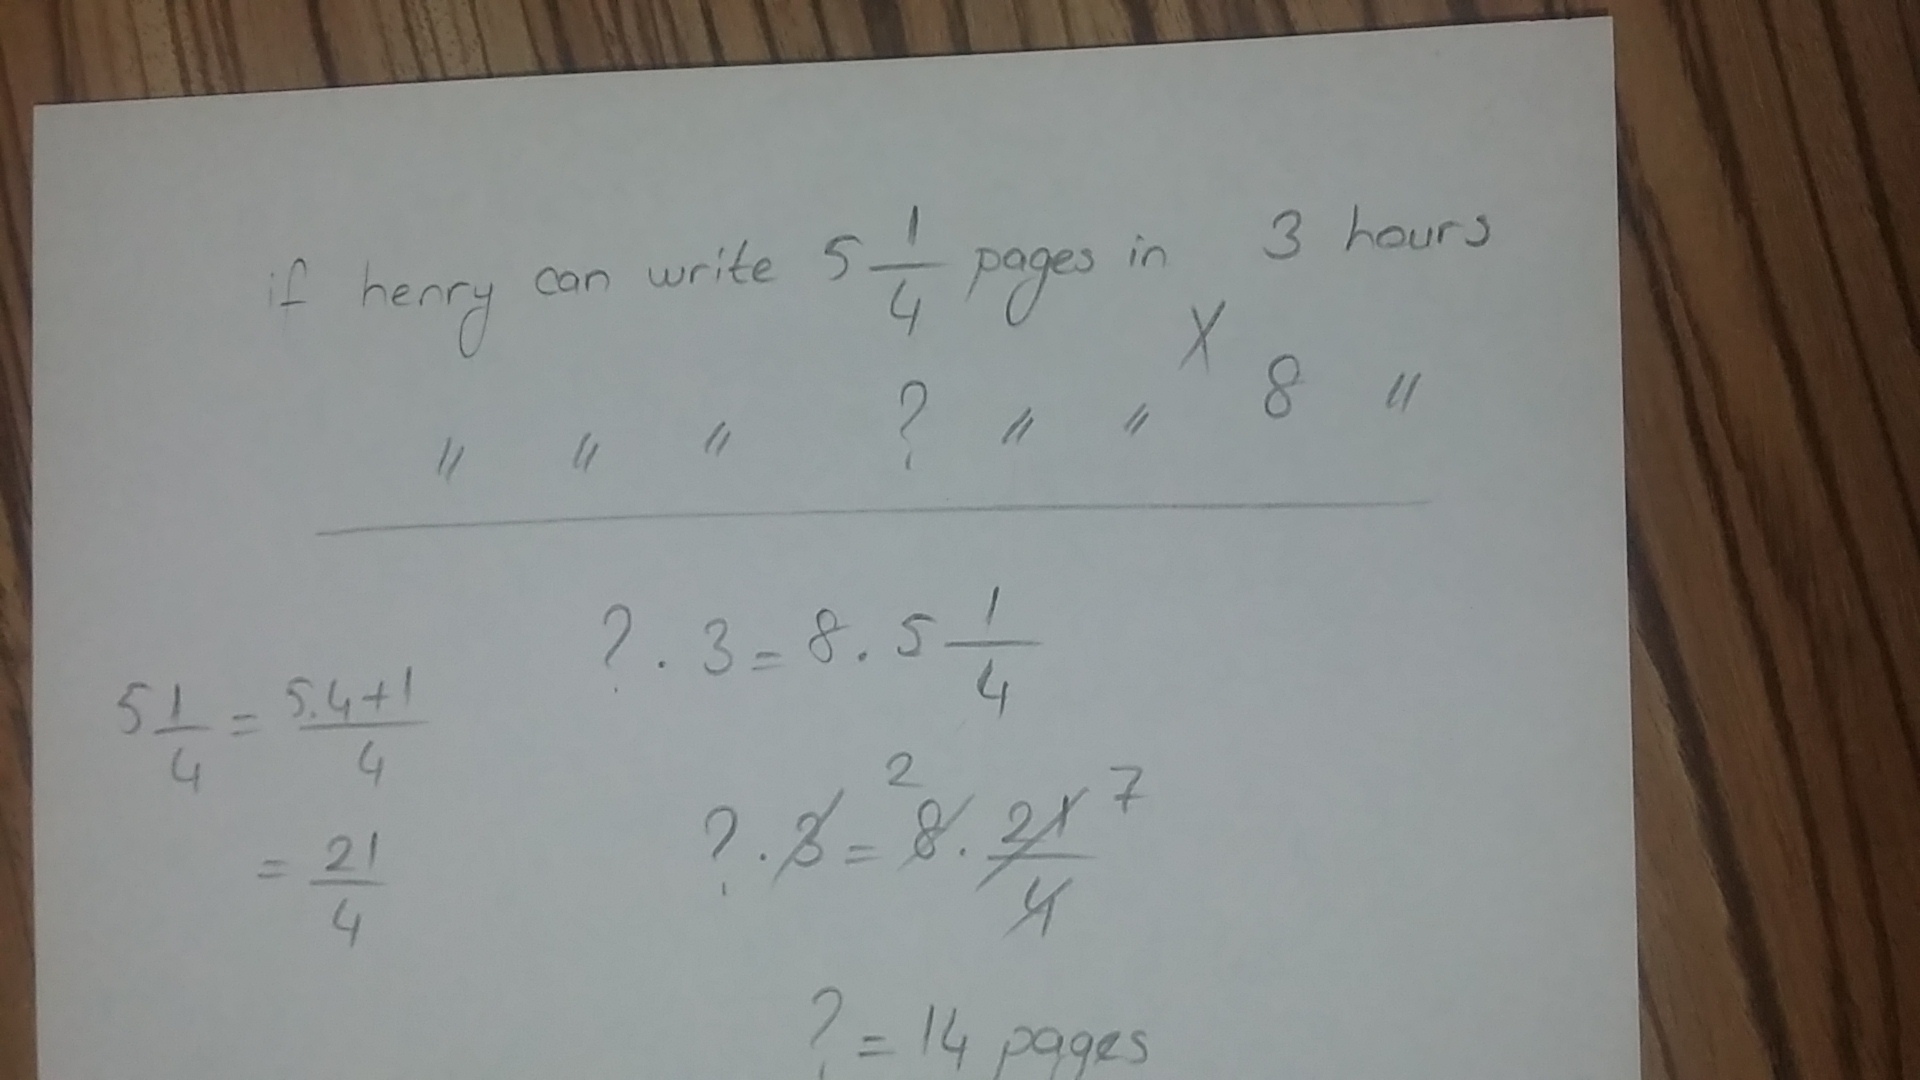 if henry can write 5 1/4 pages in 3 hours
X
" " " ? " " 8 "
? . 3 = 8 . 5 1/4
5 1/4 = 5.4+1/4
? . 3 = 2 8 . 21/4 7
= 21/4
? = 14 pages